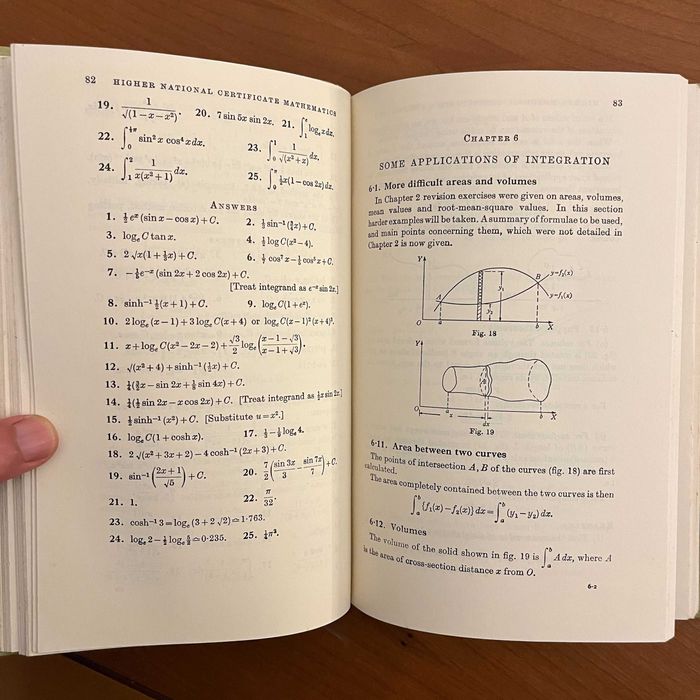 82 HIGHER NATIONAL CERTIFICATE MATHEMATICS
19. 1/√(1−x−x²). 20. 7 sin 5x sin 2x. 21. ∫₁ᵉ logₑ x dx.
22. ∫₀^{½π} sin² x cos⁴ x dx. 23. ∫₀¹ 1/√(x²+x) dx.
24. ∫₁² 1/x(x²+1) dx. 25. ∫₀^π ½x(1−cos 2x) dx.
ANSWERS
1. ½eˣ (sin x − cos x) + C. 2. ⅓ sin⁻¹ (¾x) + C.
3. logₑ C tan x. 4. ½ log C(x² − 4).
5. 2√x(1+⅓x) + C. 6. ⅐ cos⁷ x − ⅕ cos⁵ x + C.
7. −⅕e⁻ˣ (sin 2x + 2 cos 2x) + C.
[Treat integrand as e⁻ˣ sin 2x.]
8. sinh⁻¹ ½(x+1) + C. 9. logₑ C(1+eˣ).
10. 2 logₑ (x−1) + 3 logₑ C(x+4) or logₑ C(x−1)² (x+4)³.
11. x + logₑ C(x² − 2x − 2) + √3/2 logₑ (x−1−√3/x−1+√3).
12. √(x²+4) + sinh⁻¹ (½x) + C.
13. ¼(3/2 x − sin 2x + ⅛ sin 4x) + C.
14. ¼(½ sin 2x − x cos 2x) + C. [Treat integrand as ½x sin 2x]
15. ½ sinh⁻¹ (x²) + C. [Substitute u = x².]
16. logₑ C(1 + cosh x). 17. ½ − ⅙ logₑ 4.
18. 2√(x²+3x+2) − 4 cosh⁻¹ (2x+3) + C.
19. sin⁻¹ (2x+1/√5) + C. 20. 7/2 (sin 3x/3 − sin 7x/7) + C.
21. 1. 22. π/32.
23. cosh⁻¹ 3 = logₑ (3+2√2) ≏ 1·763.
24. logₑ 2 − ½ logₑ 5/2 ≏ 0·235. 25. ¼π².
83
CHAPTER 6
SOME APPLICATIONS OF INTEGRATION
6·1. More difficult areas and volumes
In Chapter 2 revision exercises were given on areas, volumes,
mean values and root-mean-square values. In this section
harder examples will be taken. A summary of formulae to be used,
and main points concerning them, which were not detailed in
Chapter 2 is now given.
Y
A B y=f₂(x)
y₁
y=f₁(x)
y₂
O a b X
Fig. 18
Y
A
O a x dx b X
Fig. 19
6·11. Area between two curves
The points of intersection A, B of the curves (fig. 18) are first
calculated.
The area completely contained between the two curves is then
∫ₐᵇ {f₁(x) − f₂(x)} dx = ∫ₐᵇ (y₁ − y₂) dx.
6·12. Volumes
The volume of the solid shown in fig. 19 is ∫ₐᵇ A dx, where A
is the area of cross-section distance x from O.
6-2